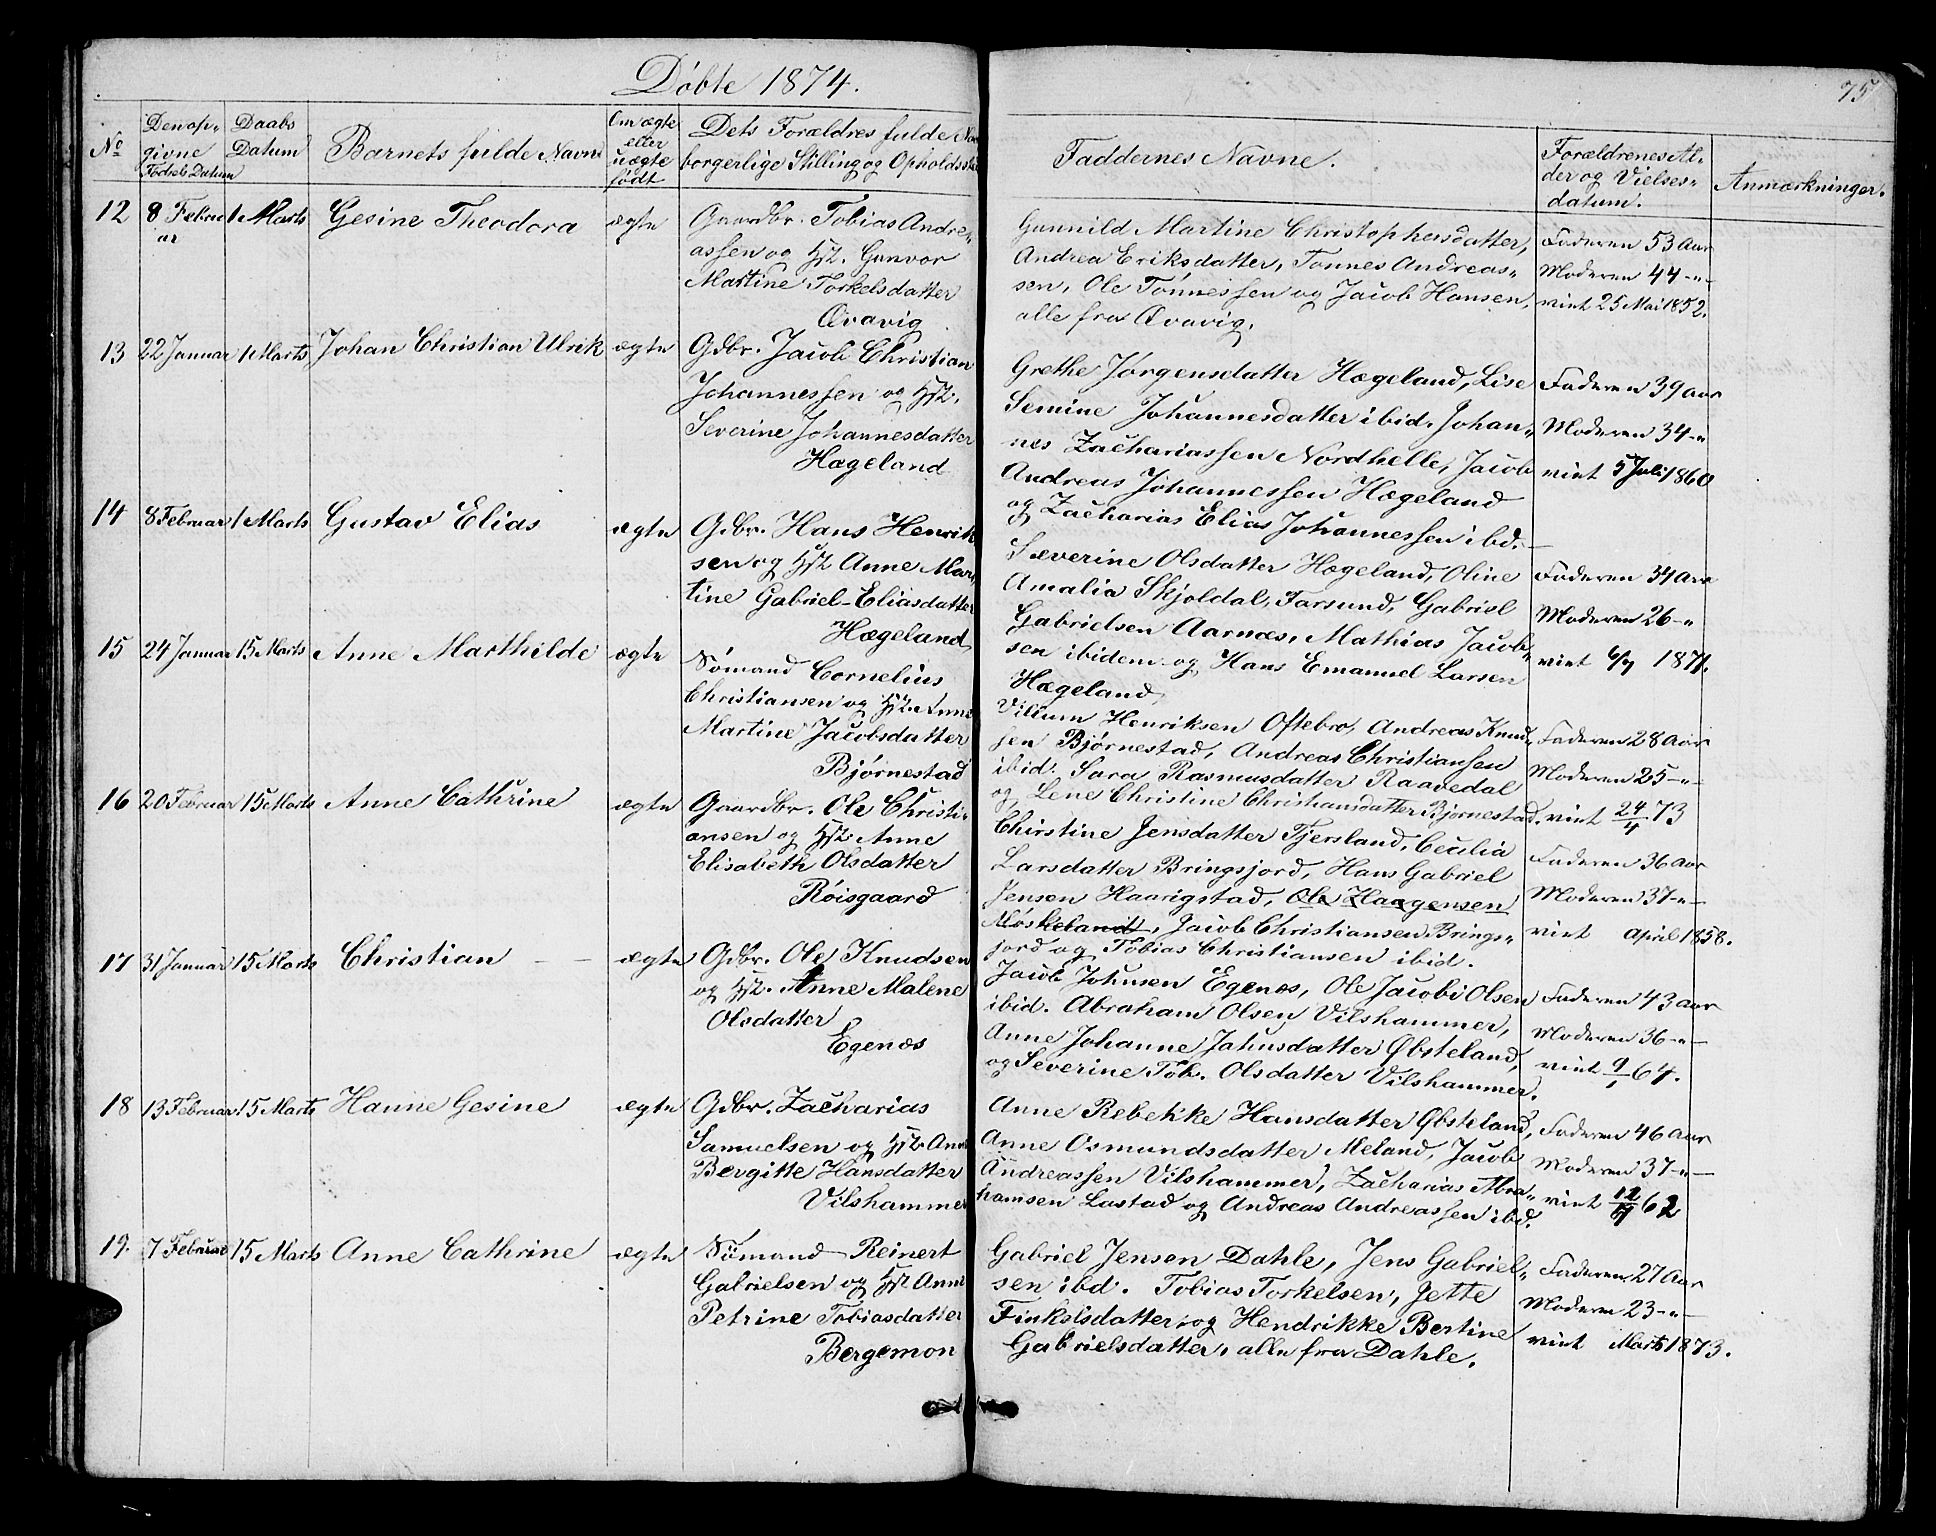 Døbte 1874.
75
No
Den op-
givne
Fødsels Datum
Daabs
Datum
Barnets fulde Navn
Om ægte
eller
uægte
født
Dets Forældres fulde Nav
borgerlige Stilling og Opholdsste
Faddernes Navne.
Forældrenes Al-
der og Vielses-
datum.
Anmærkninger.
12 8 Febru 1 Marts Gesine Theodora ægte Gaardbr. Tobias Andre-
ar
assen og Hst. Gunvor
Martine Torkelsdatter
Qvavig
Gunnild Martine Christophersdatter,
Andrea Eriksdatter, Tønnes Andreas-
sen, Ole Tønnessen og Jacob Hansen,
alle fra Qvavig.
Faderen 53 Aar
Moderen 44 -"-
viet 25 Mai 1852.
13 22 Januar 1 Marts Johan Christian Ulrik ægte Gdbr. Jacob Christian
Johannessen og Hst.
Severine Johannesdatter
Hægeland
Grethe Jørgensdatter Hægeland, Lise
Semine Johannesdatter ibid. Johan-
nes Zachariassen Nordhelle, Jacob
Andreas Johannessen Hægeland
og Zacharias Elias Johannessen ibd.
Faderen 39 aar
Moderen 34 -"
viet 5 Juli 1860
14 8 Februar 1 Marts Gustav Elias ægte Gdbr. Hans Henrik
sen og Hst Anne Mar
tine Gabriel-Eliasdatter
Hægeland
Severine Olsdatter Hægeland, Oline
Amalia Skjoldal, Farsund, Gabriel
Gabrielsen Aarnæs, Mathias Jacob-
sen ibidem og Hans Emanuel Larsen
Hægeland,
Faderen 34 Aar
Moderen 26 -"
viet 6/7 1871.
15 24 Januar 15 Marts Anne Marthilde ægte Sømand Cornelius
Christiansen og Hst. Anne
Martine Jacobsdatter
Bjørnestad
Vilium Henriksen Oftebro, Andreas Knud-
sen Bjørnestad, Andreas Christiansen
ibid. Sara Rasmusdatter Raavedal
og Lene Christine Christiansdatter Bjørnestad.
Faderen 28 Aar
Moderen 25 -"-
viet 24/4 73
16 20 Februar 15 Marts Anne Cathrine ægte Gaardbr. Ole Christi-
ansen og Hst. Anne
Elisabeth Olsdatter
Røisgaard
Chirstine Jensdatter Tjersland, Cecilia
Larsdatter Bringsjord, Hans Gabriel
Jensen Haarigstad, Ole Haagensen
Møskeland, Jacob Christiansen, Brings-
jord og Tobias Christiansen ibid.
Faderen 36 Aar
Moderen 37 -"-
viet April 1858.
17 31 Januar 15 Marts Christian ægte Gdbr. Ole Knudsen
og Hst. Anne Malene
Olsdatter
Egenæs
Jacob Johnsen Egenæs, Ole Jacobi Olsen
ibid. Abraham Olsen Vilshammer,
Anne Johanne Jahnsdatter Øbsteland,
og Severine Tob. Olsdatter Vilshammer.
Faderen 43 Aar
Moderen 36 -"-
viet 9/1 64.
18 13 Februar 15 Marts Hanne Gesine ægte Gdbr. Zacharias
Samuelsen og Hst. Anne
Bergitte Hansdatter
Vilshammer
Anne Rebekke Hansdatter Øbsteland,
Anne Osmundsdatter Meland, Jacob
Andreassen Vilshammer, Zacharias Abra-
hamsen Lastad og Andreas Andreassen ibd.
Faderen 46 Aar
Moderen 37 -"-
viet 62
19. 7 Februar 15 Marts Anne Cathrine ægte Sømand Reinert
Gabrielsen og Hst Anne
Petrine Tobiasdatter
Bergemon
Gabriel Jensen Dahle, Jens Gabriel-
sen ibd. Tobias Torkelsen, Jette
Finkelsdatter, og Hendrikke Bertine
Gabrielsdatter, alle fra Dahle.
Faderen 27 Aar
Moderen 23 -"-
viet Marts 1873.